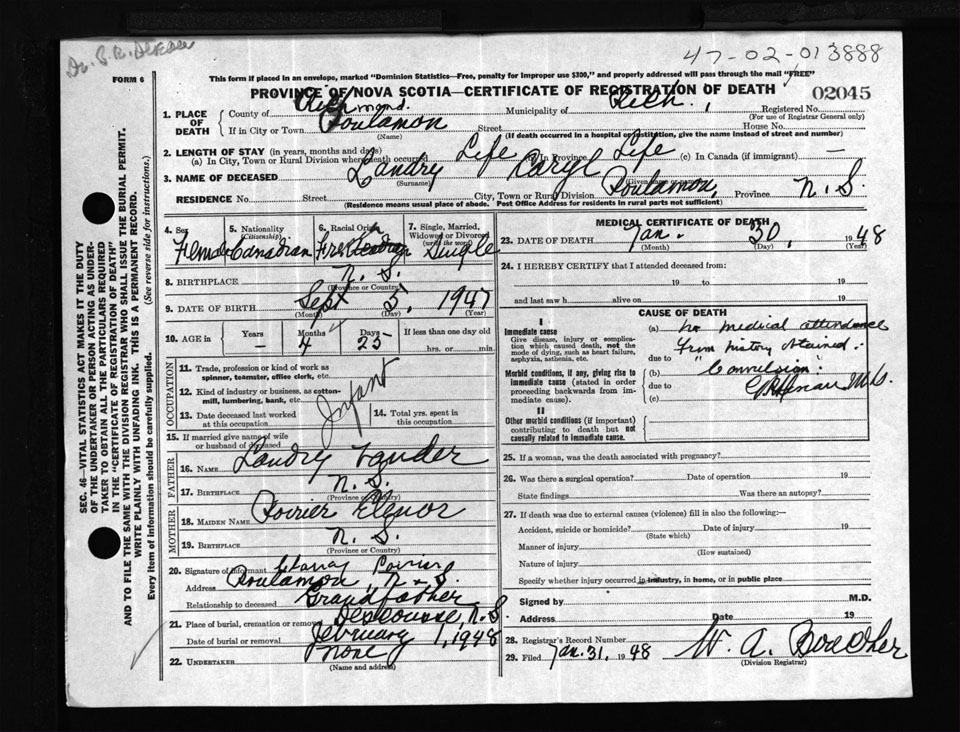 Dr. S. R. Deveau
47-02-013888
FORM 6
This form if placed in an envelope, marked "Dominion Statistics—Free, penalty for improper use $300," and properly addressed will pass through the mail "FREE"
PROVINCE OF NOVA SCOTIA—CERTIFICATE OF REGISTRATION OF DEATH
02045
1. PLACE OF DEATH { County of Richmond. Municipality of Rich. Registered No.
(For use of Registrar General only)
If in City or Town Poulamon Street House No.
(Name) (If death occurred in a hospital or institution, give the name instead of street and number)
2. LENGTH OF STAY (in years, months and days)
(a) In City, Town or Rural Division where death occurred Life (b) In Province Life (c) In Canada (if immigrant) —
3. NAME OF DECEASED Landry Caryl
(Surname) (Given names)
RESIDENCE No. Street City, Town or Rural Division Poulamon, Province N. S.
(Residence means usual place of abode. Post Office Address for residents in rural parts not sufficient)
4. Sex Female
5. Nationality (Citizenship) Canadian
6. Racial Origin
7. Single, Married, Widowed or Divorced (write the word) Single
8. BIRTHPLACE N. S.
(Province or Country)
9. DATE OF BIRTH Sept 5, 1947
(Month) (Day) (Year)
10. AGE in Years Months Days If less than one day old
— 4 25 — hrs. or min.
OCCUPATION
11. Trade, profession or kind of work as spinner, teamster, office clerk, etc.
Infant
12. Kind of industry or business, as cotton-mill, lumbering, bank, etc.
13. Date deceased last worked at this occupation
14. Total yrs. spent in this occupation
15. If married give name of wife or husband of deceased
FATHER
16. NAME Landry Xander
17. BIRTHPLACE N. S.
(Province or Country)
MOTHER
18. MAIDEN NAME Poirier Elenor
19. BIRTHPLACE N. S.
(Province or Country)
20. Signature of Informant Harry Poirier
Address Poulamon, N. S.
Relationship to deceased Grandfather
21. Place of burial, cremation or removal Descousse, N. S.
Date of burial or removal February 1, 1948
22. UNDERTAKER none
(Name and address)
MEDICAL CERTIFICATE OF DEATH
23. DATE OF DEATH Jan. 30, 1948
(Month) (Day) (Year)
24. I HEREBY CERTIFY that I attended deceased from:
19 to 19
and last saw h alive on 19
CAUSE OF DEATH
I
Immediate cause
Give disease, injury or complication which caused death, not the mode of dying, such as heart failure, asphyxia, asthenia, etc.
(a) no medical attendance
from history obtained.
due to
Morbid conditions, if any, giving rise to immediate cause (stated in order proceeding backwards from immediate cause).
(b) "Convulsion"
due to M.D.
(c)
II
Other morbid conditions (if important) contributing to death but not causally related to immediate cause.
25. If a woman, was the death associated with pregnancy?
26. Was there a surgical operation? Date of operation 19
State findings Was there an autopsy?
27. If death was due to external causes (violence) fill in also the following:—
Accident, suicide or homicide? Date of injury 19
(State which)
Manner of injury
(How sustained)
Nature of injury
Specify whether injury occurred in industry, in home, or in public place
Signed by M.D.
Address Date 19
28. Registrar's Record Number
29. Filed Jan. 31, 1948 W. A. Boucher
(Division Registrar)
SEC. 46—VITAL STATISTICS ACT MAKES IT THE DUTY
OF THE UNDERTAKER OR PERSON ACTING AS UNDER-
TAKER TO OBTAIN ALL THE PARTICULARS REQUIRED
IN THE "CERTIFICATE OF REGISTRATION OF DEATH"
AND TO FILE THE SAME WITH THE DIVISION REGISTRAR WHO SHALL ISSUE THE BURIAL PERMIT.
WRITE PLAINLY WITH UNFADING INK. THIS IS A PERMANENT RECORD.
Every item of information should be carefully supplied. (See reverse side for instructions.)